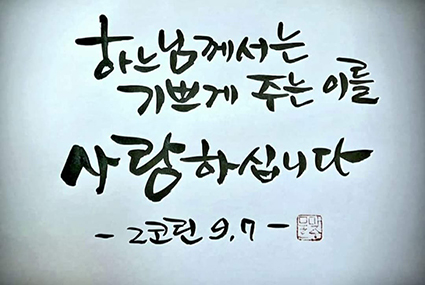 하느님께서는
기쁘게 주는 이를
사랑하십니다
- 2코린 9,7 -